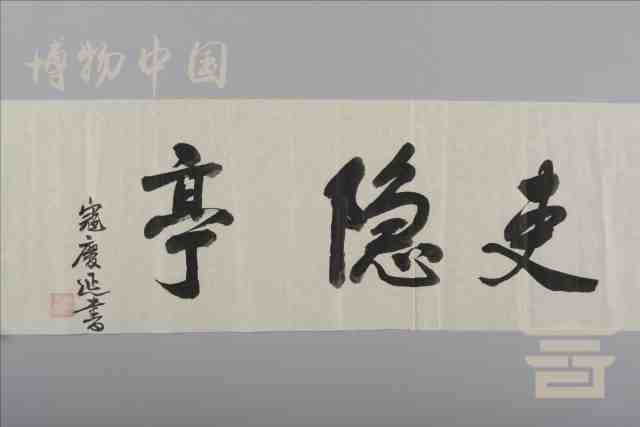 博物中国
吏隐亭
寇慶延書